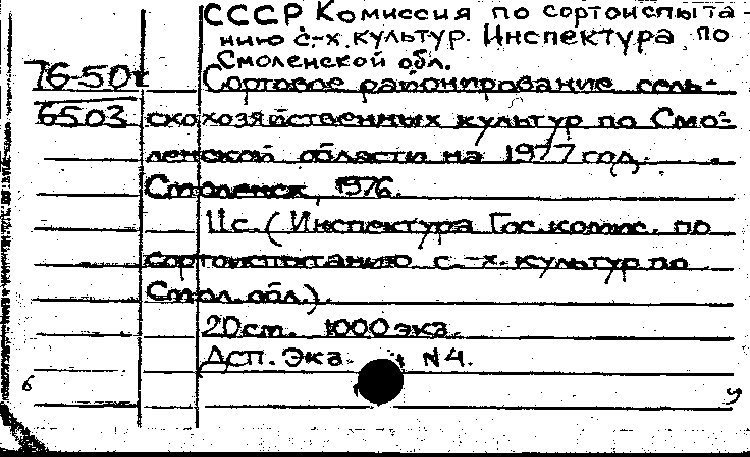 СССР Комиссия по сортоиспыта-
нию с.-х. культур. Инспектура по
Смоленской обл.
76-50т
Сортовое районирование сель-
6503
скохозяйственных культур по Смо-
ленской области на 1977 год.
Смоленск, 1976.
11с. (Инспектура Гос. комис. по
сортоиспытанию с.-х. культур по
Смол. обл.).
20 см. 1000 экз.
Дсп. Экз. N 4.
б
у